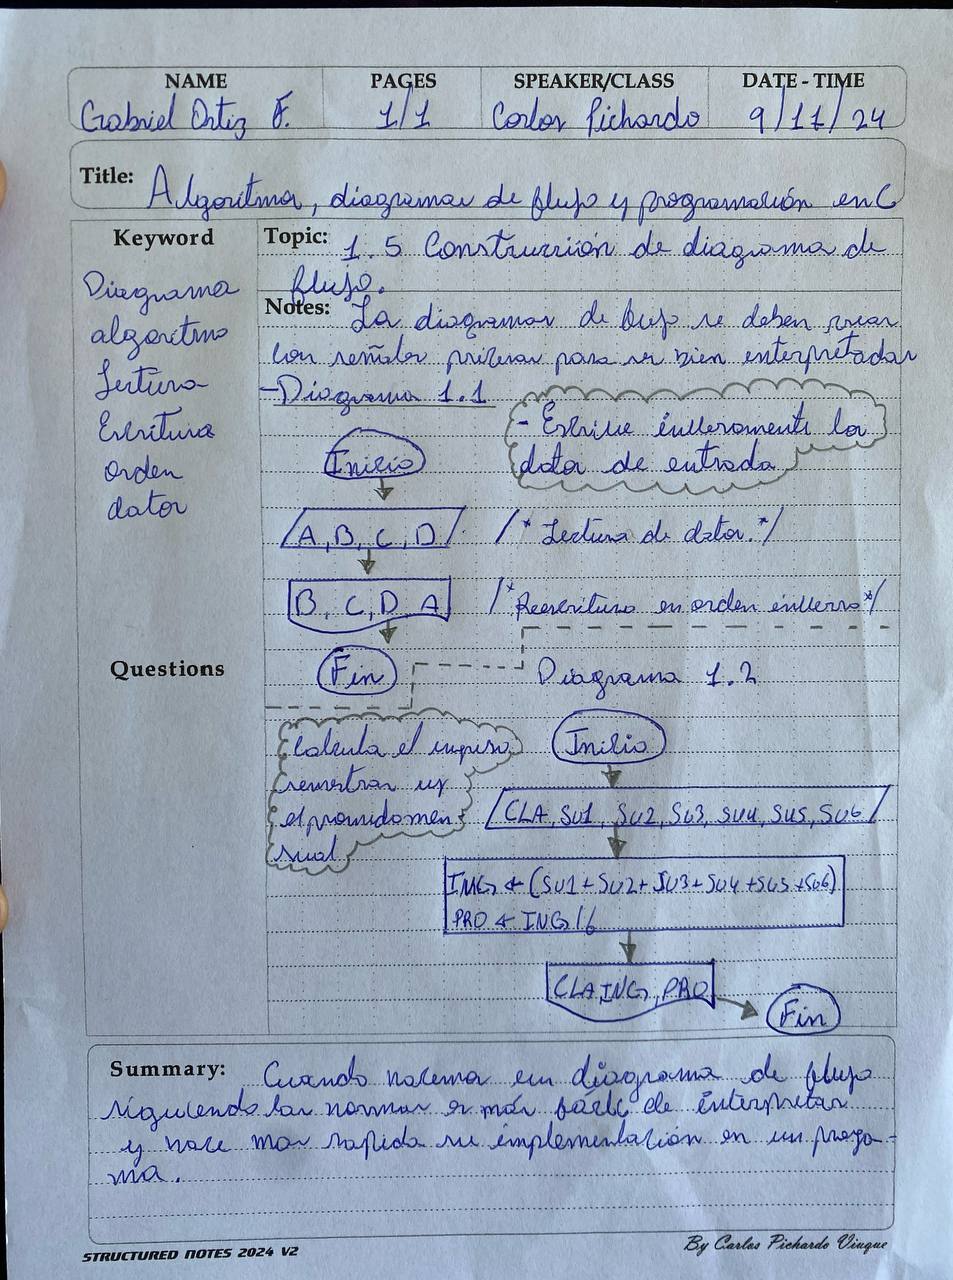 NAME PAGES SPEAKER/CLASS DATE - TIME
Gabriel Ortiz F. 1/1 Carlos Pichardo 9/11/24
Title: Algoritma, diagramas de flujo y programación en C
Keyword
Diagrama
algoritmo
Lectura
Escritura
orden
datos
Questions
Topic: 1.5 Construcción de diagrama de
flujo.
Notes: La diagramas de flujo se deben
con para ser bien interpretadas
-Diagrama 1.1
- Escribe inversamente los
datos de entrada
Inicio
A, B, C, D /* Lectura de datos.*/
B, C, D A /*Reescritura en orden inverso*/
Fin
Diagrama 1.2
Calcula el
semestral y
el promidomen
sual
Inicio
CLA, SU1, SU2, SU3, SU4, SU5, SU6
ING ← (SU1+SU2+SU3+SU4+SU5+SU6)
PRO ← ING/6
CLA ING, PRO
Fin
Summary: Cuando hacema un diagrama de flujo
siguiendo las normas es más fácil de interpretar
y hace mas rapida su implementación en un progra-
ma.
STRUCTURED NOTES 2024 V2
By Carlos Pichardo Viuque